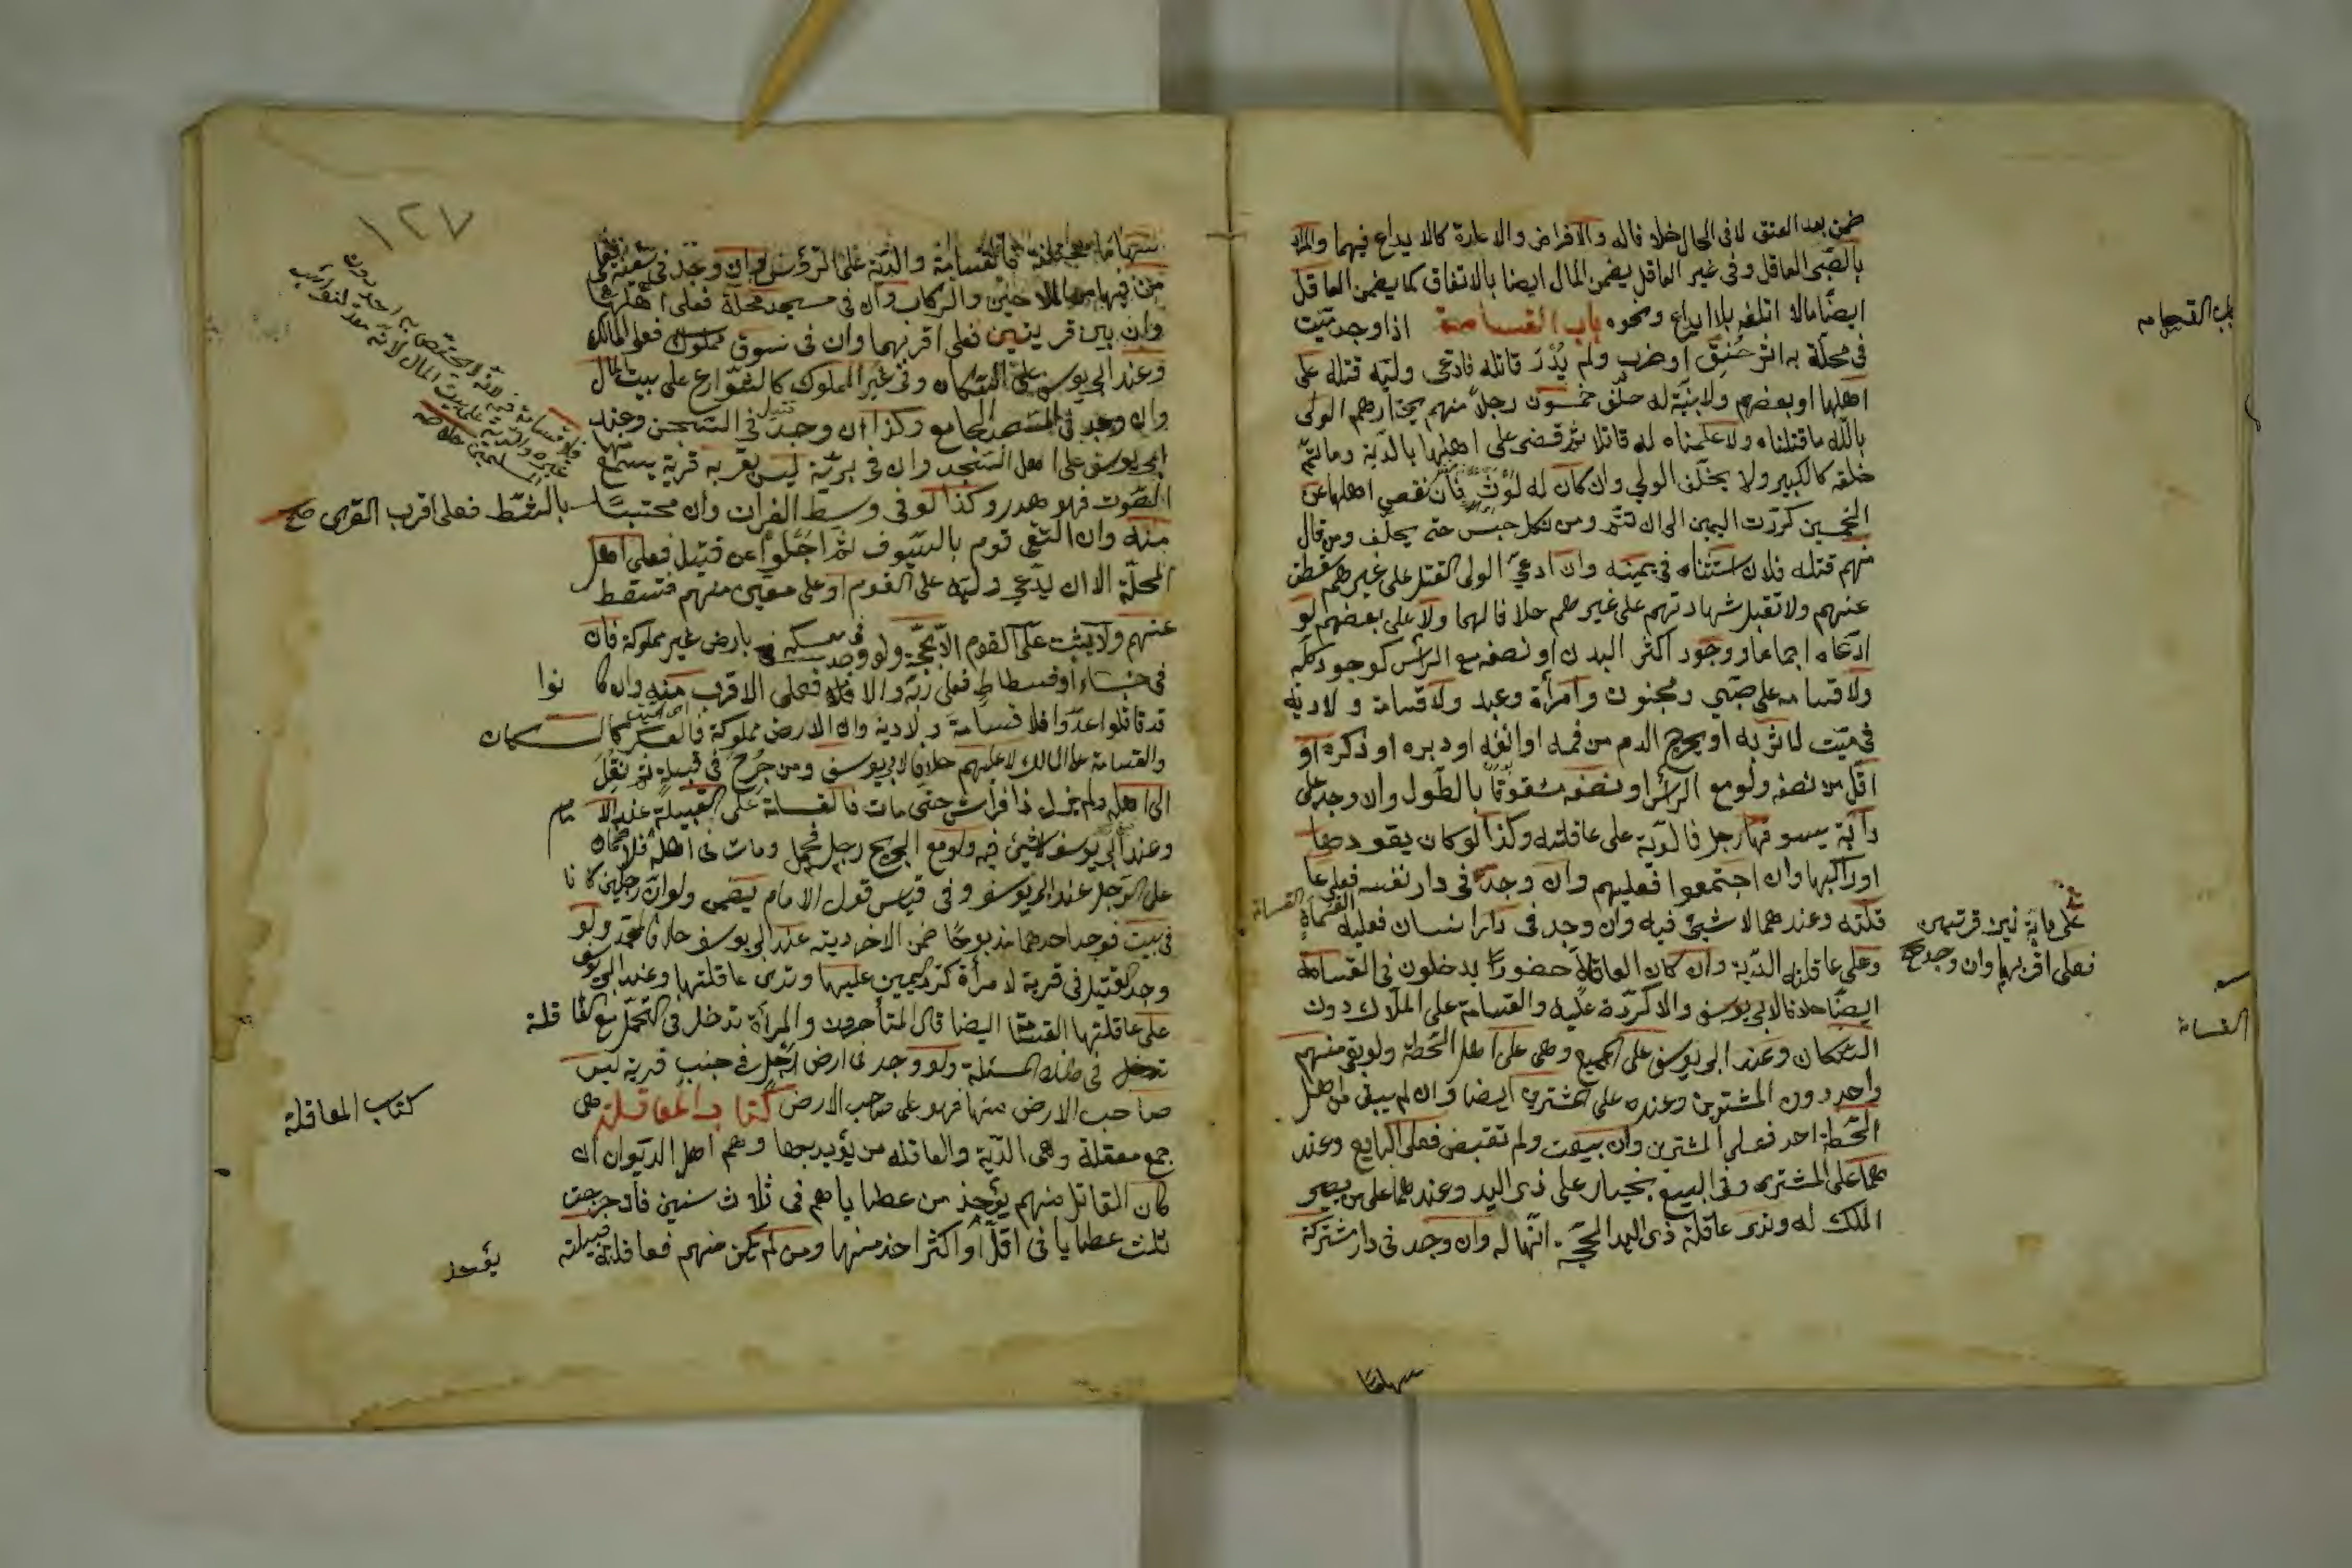 ضمن بعد العتق لا في الحال خلافا له والاقراض والاعارة كالايداع فيهما والمراد
بالصّبى العاقل وفى غير العاقل يضمن المال ايضا بالاتفاق كما يضمن العاقل
ايضًا مالا اتلفه بلا ايداع ونحوه باب القسامة اذا وجد ميّت
فى محلّة به اثر خُنِقٍ او ضرب ولم يُدْرَ قاتله فادّعى وليّه قتله على
اهلها او بعضهم ولا بيّنة له حلّف خمسون رجلاً منهم يختارهم الولى
بالله ما قتلناه ولا علمناه له قاتلا ثم قضى على اهلها بالدّية وما تمّ
خلقه كالكبير ولا يحلّف الولي وان كان له لَوْثٌ فان نقص اهلها عن
الخمسين كرّرت اليمين الى ان تتمّ ومن نكل حبس حتى يحلف ومن قال
منهم قتله فلان استثناه في يمينه وان ادعىّ الولى القتل على غيرهم سقطت
عنهم ولا تقبل شهادتهم على غيرهم خلافا لهما ولا على بعضهم لو
ادّعاه اجماعا ووجود اكثر البدن او نصفه مع الرأس كوجود كلّه
ولا قسامه على صبّي ومجنون وامرأة وعبد ولا قسامة ولا دية
في ميّت لا اثر به او يخرج الدم من فمه او انفه او دبره او ذكره او
اقّل من نصفه ولو مع الرأس او نصفه مشقوقًا بالطّول وان وجد على
دابّة يسوقها رجل فالديّة على عاقلته وكذا لو كان يقودها
او راكبها وان اجتمعوا فعليهم وان وجد في دار نفسه فعلى عا
قلته وعندهما لا شيئ فيه وان وجد في دار انسان فعليه القسامة
وعلى عاقلته الدّية وان كان العاقلة حضورًا يدخلون في القسامة
ايضًا خلافا لابي يوسف والا كرّرت عليه والقسامة على الملّاك دون
السّكان وعند ابي يوسف على الجميع وهى على اهل الخطّة ولو بقى منهم
واحد دون المشترين وعنده على المشترين ايضا وان لم يبق من اهل
الخطّة احد فعلى المشترين وان بيعت ولم تقبض فعلى البايع وعند
هما على المشترى وفى البيع بخيار على ذى اليد وعندهما على من يصير
الملك له وتدى عاقلة ذى اليد الحجّه انّها له وان وجد في دار مشتركة
باب القسامه
على دابة بين قريتين
فعلى اقربهما وان وجد صح
القسامة
سهاما
١٢٧
سهاما مختلفة فالقسامة والدّية على الرؤس وان وجد في سفينة فعلى
من فيها من الملاحين والركاب وان في مسجد محلّة فعلى اهلها
وان بين قريتين فعلى اقربهما وان في سوق مملوك فعلى المالك
وعند ابي يوسف على السّكان وفى غير المملوك كالشّوارع على بيت المال
وان وجد في المسجد الجامع وكذا ان وجد قتيل في السّجن وعند
ابي يوسف على اهل السّجن وان في بريّة ليس بقربه قرية يسمع
الصّوت فهو هدر وكذا لو في وسط الفرات وان محتبسًا
بالشّط فعلى اقرب القرى صح
منه وان التقى قوم بالسّيوف ثمّ اجلوا عن قتيل فعلى اهل
المحلّة الا ان يدّعي وليّه على القوم او على معيّن منهم فتسقط
عنهم ولا يثبت على القوم الّا بحجّة ولو وجد في معسكر بارض غير مملوكة فان
في خباء او فسطاط فعلى ربّه والا فعلى الاقرب منه وان كانوا
قد قاتلوا عدوّا فلا قسامة ولا دية وان الارض مملوكة فالعسكر كالسكان
والقسامة على المالك لا عليهم خلافا لابي يوسف ومن جُرح في قبيلة ثم نُقل
الى اهله ولم يزل ذا فراش حتى مات فالقسامة على القبيلة عند الامام
وعند ابي يوسف لا شيئ فيه ولو مع الجريح رجل فحمل ومات في اهله فلا ضمان
على الرّجل عند ابي يوسف وفي قياس قول الامام يضمن ولو انّ رجلين كانا
في بيت فوجد احدهما مذبوحًا ضمن الاخر ديته عند ابي يوسف خلافا لمحمّد ولو
وجد القتيل في قرية لامرأة كرّر اليمين عليها وتدى عاقلتها وعند ابي يوسف
على عاقلتها القسامة ايضا قال المتأخرون والمرأة تدخل في التّحمّل مع العاقلة
تدخل في هذه المسئلة ولو وجد في ارض رجل في جنب قرية ليس
صاحب الارض منها فهو على صاحب الارض كتاب المعاقلة هى
جمع معقلة وهى الدّية والعاقله من يؤديها وهم اهل الديوان ان
كان القاتل منهم يؤخذ من عطاياهم في ثلاث سنين فان خرجت
ثلث عطايا في اقلّ او اكثر اخذ منها ومن لم يكن منهم فعاقلته قبيلته
كتاب المعاقلة
يؤخذ